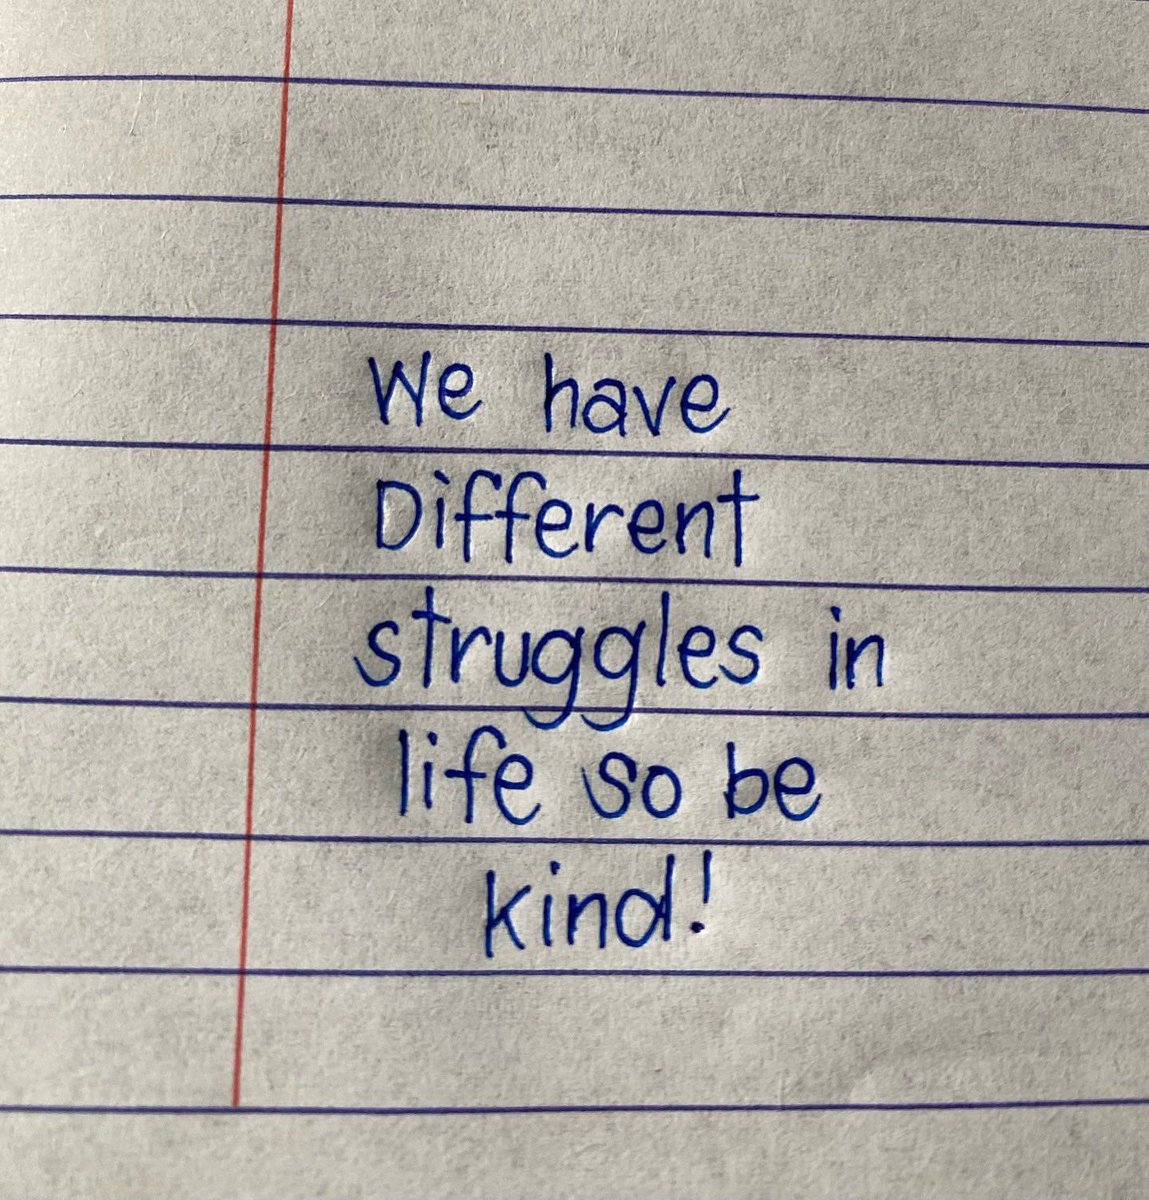 We have
Different
struggles in
life so be
kind!